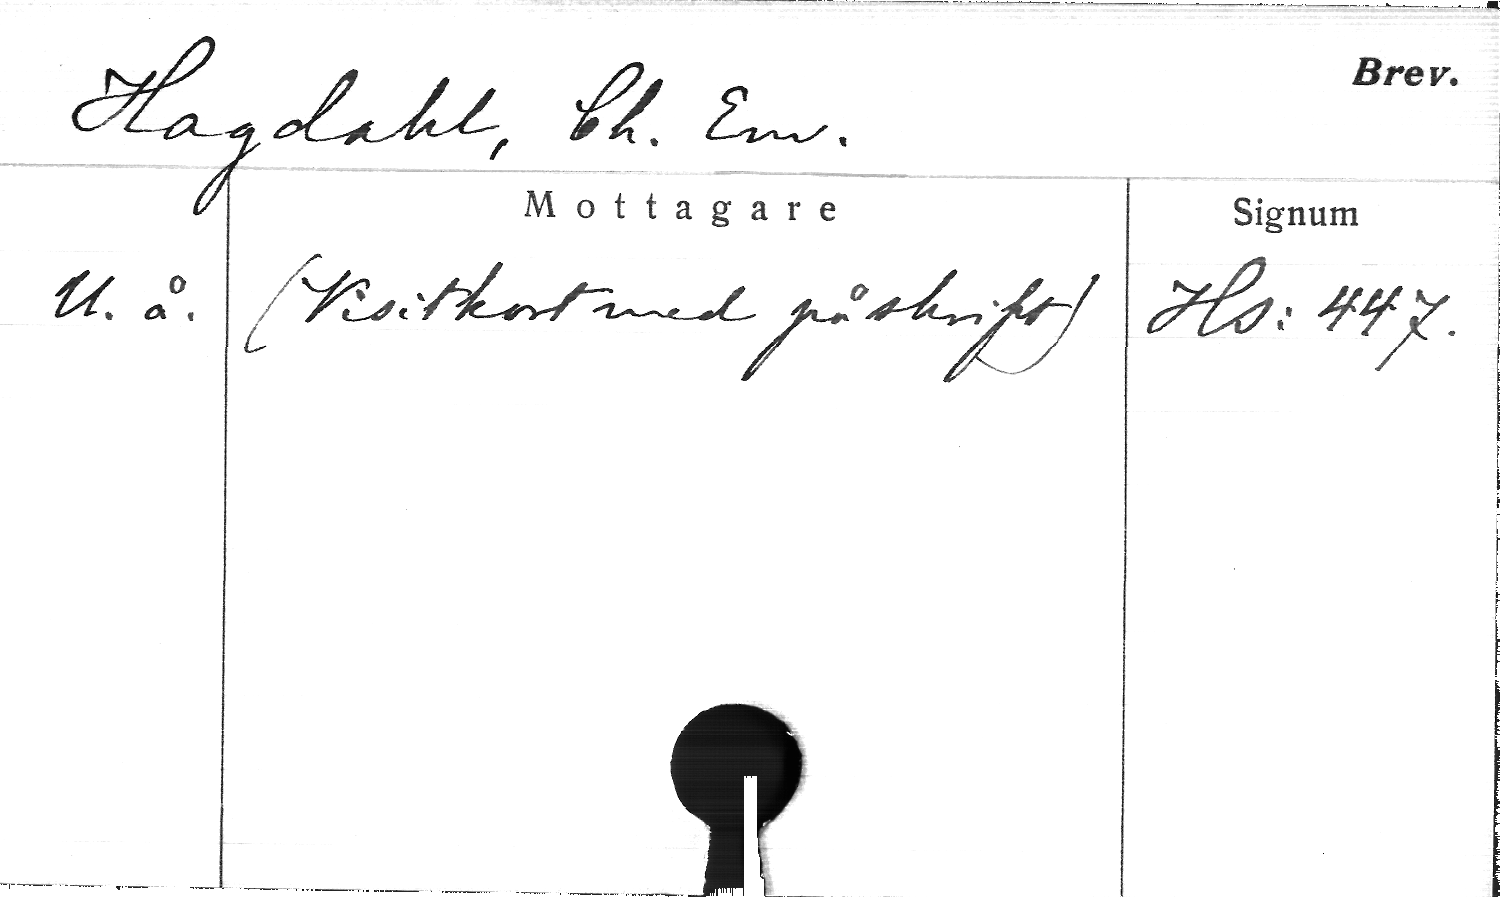 Hagdahl, Ch. Em.
Brev.
Mottagare
Signum
U. å.
(Visitkort med påskrift)
Hs: 447.